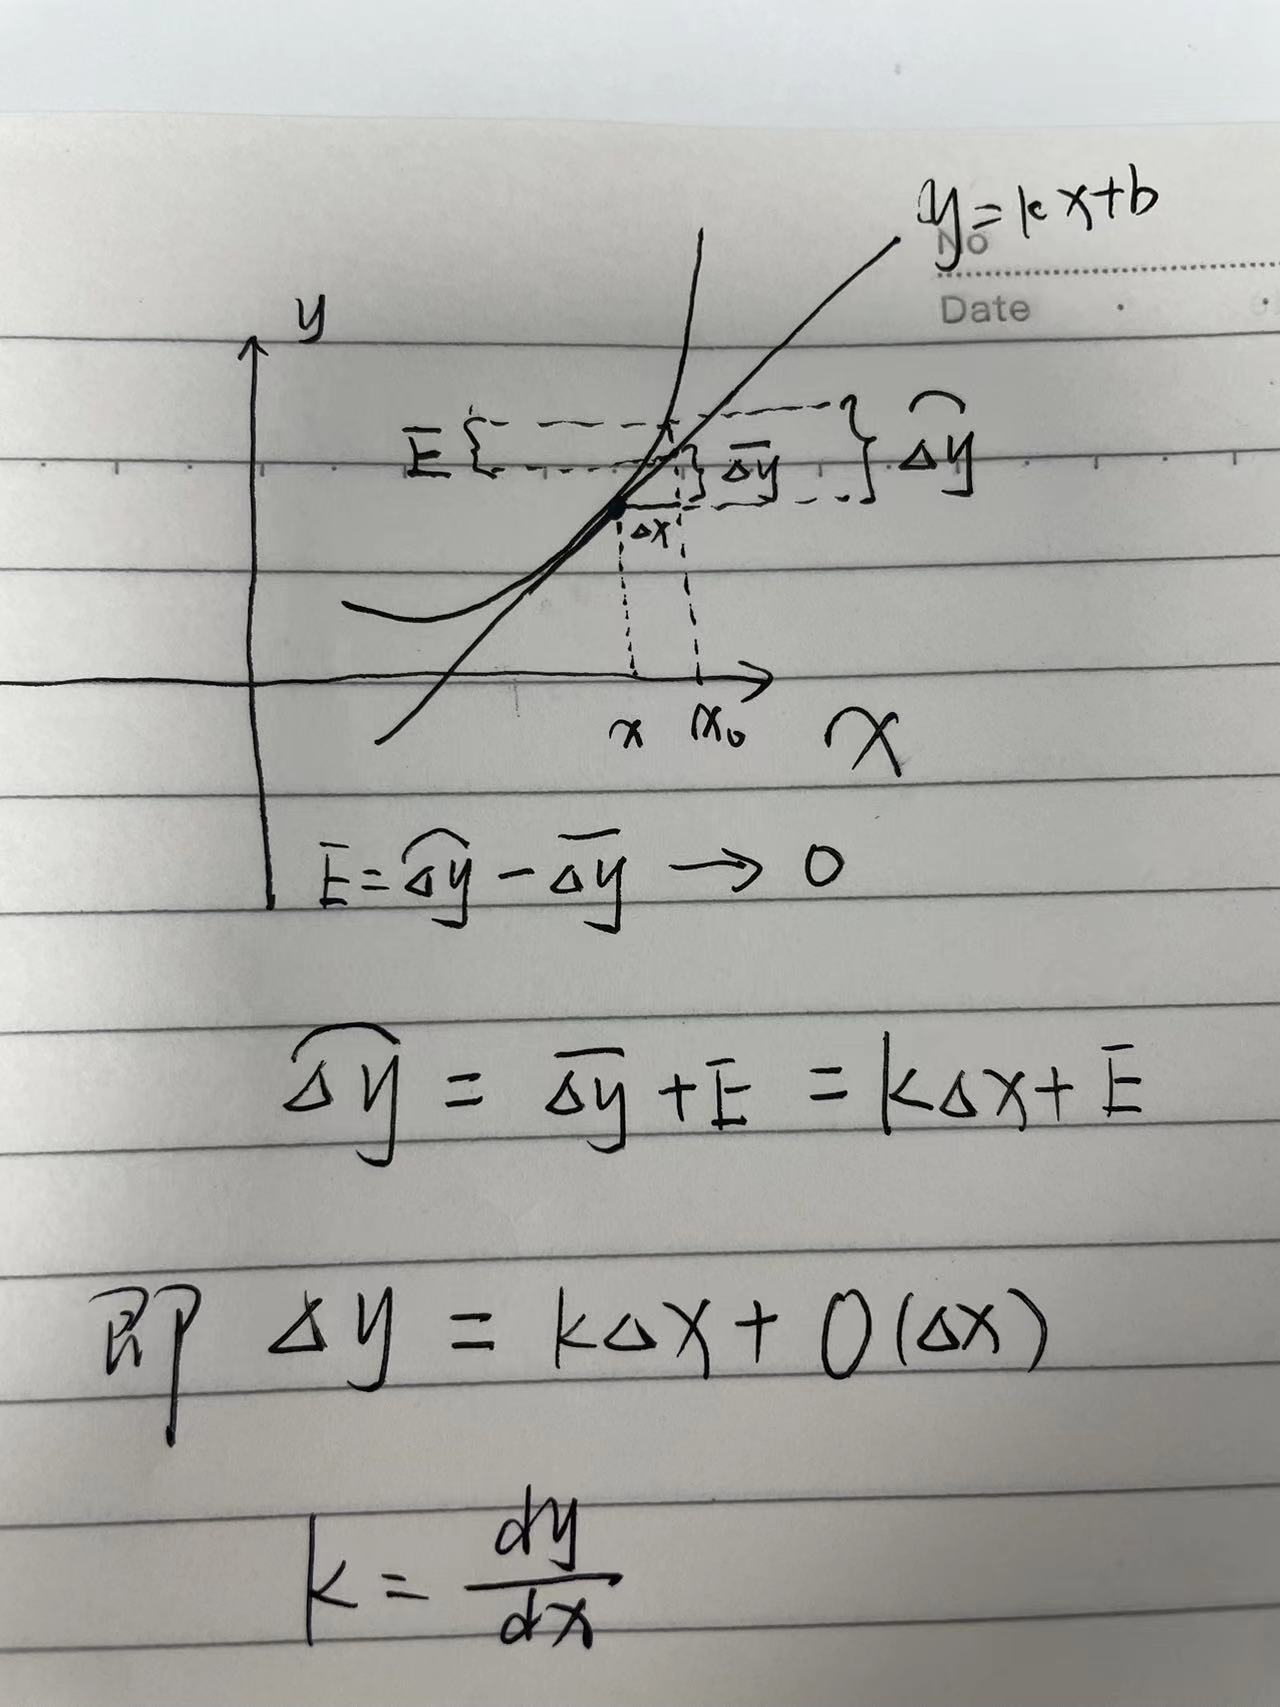 y=kx+b
No
Date
y
E
Δy
Δy
Δx
x x₀ x
E=Δy-Δy→0
Δy=Δy+E=kΔx+E
即 Δy=kΔx+0(Δx)
k=dy/dx